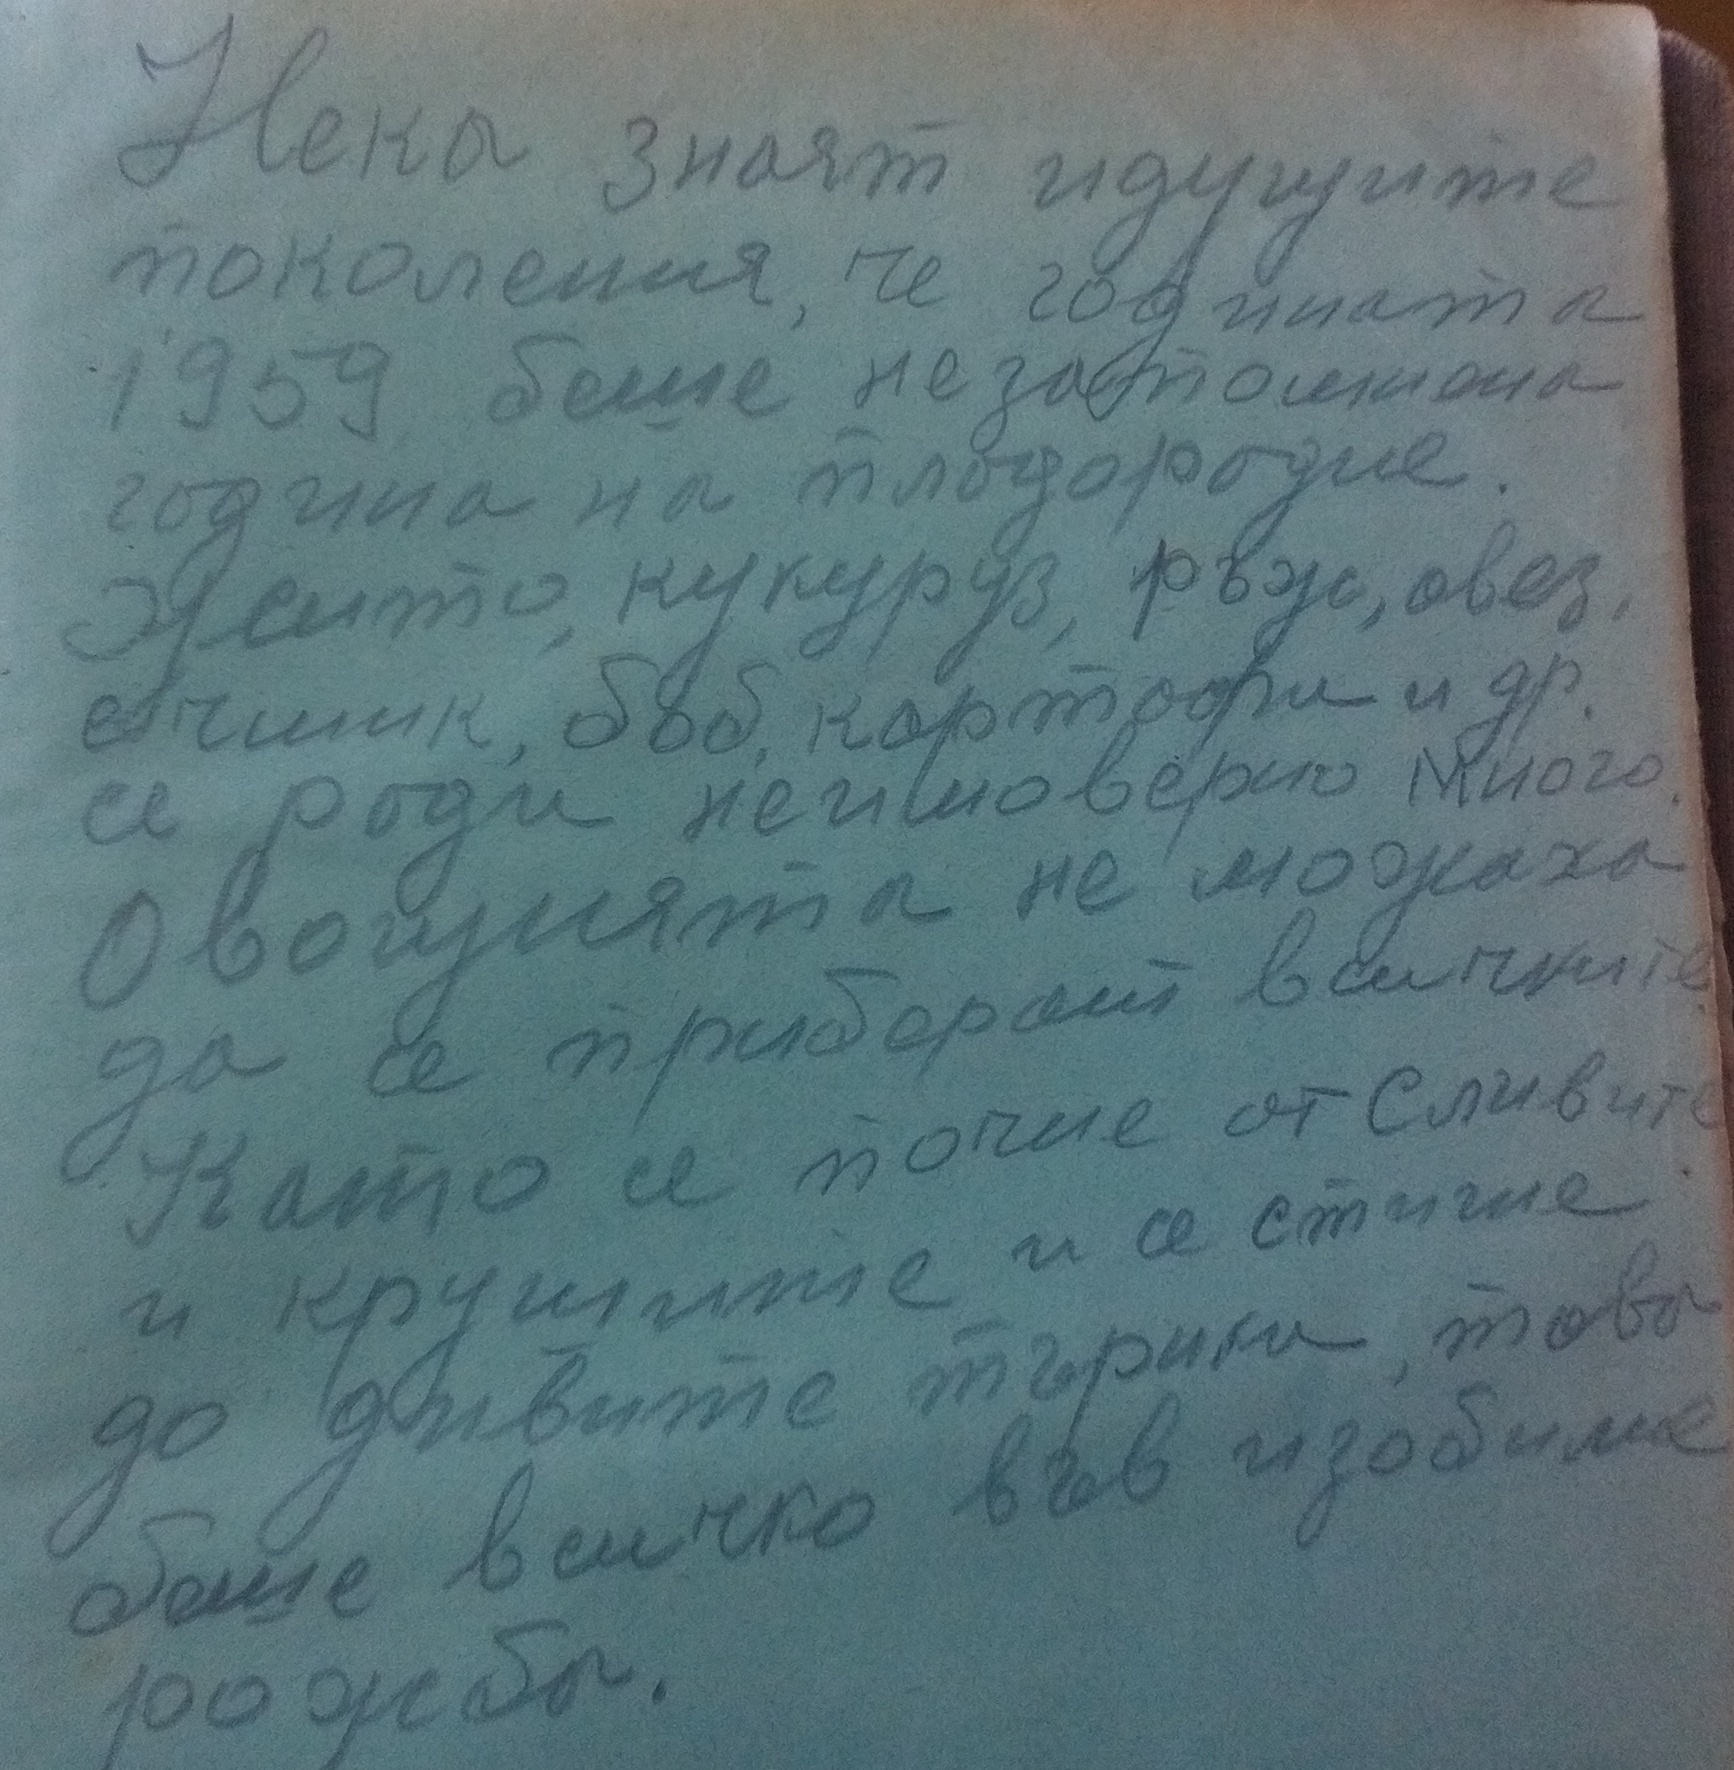 Нека знаят идущите
поколения, че годината
1959 беше незапомнена
година на плодородие.
Жито, кукуруз, ръж, овез,
ечмик, боб, картофи и др.
се роди неимоверно много.
Овощията не можаха
да се приберат всичките
Като се почне от Сливите
и крушите и се стигне
до дивите търнки, това
беше всичко във изобилие
рожба.